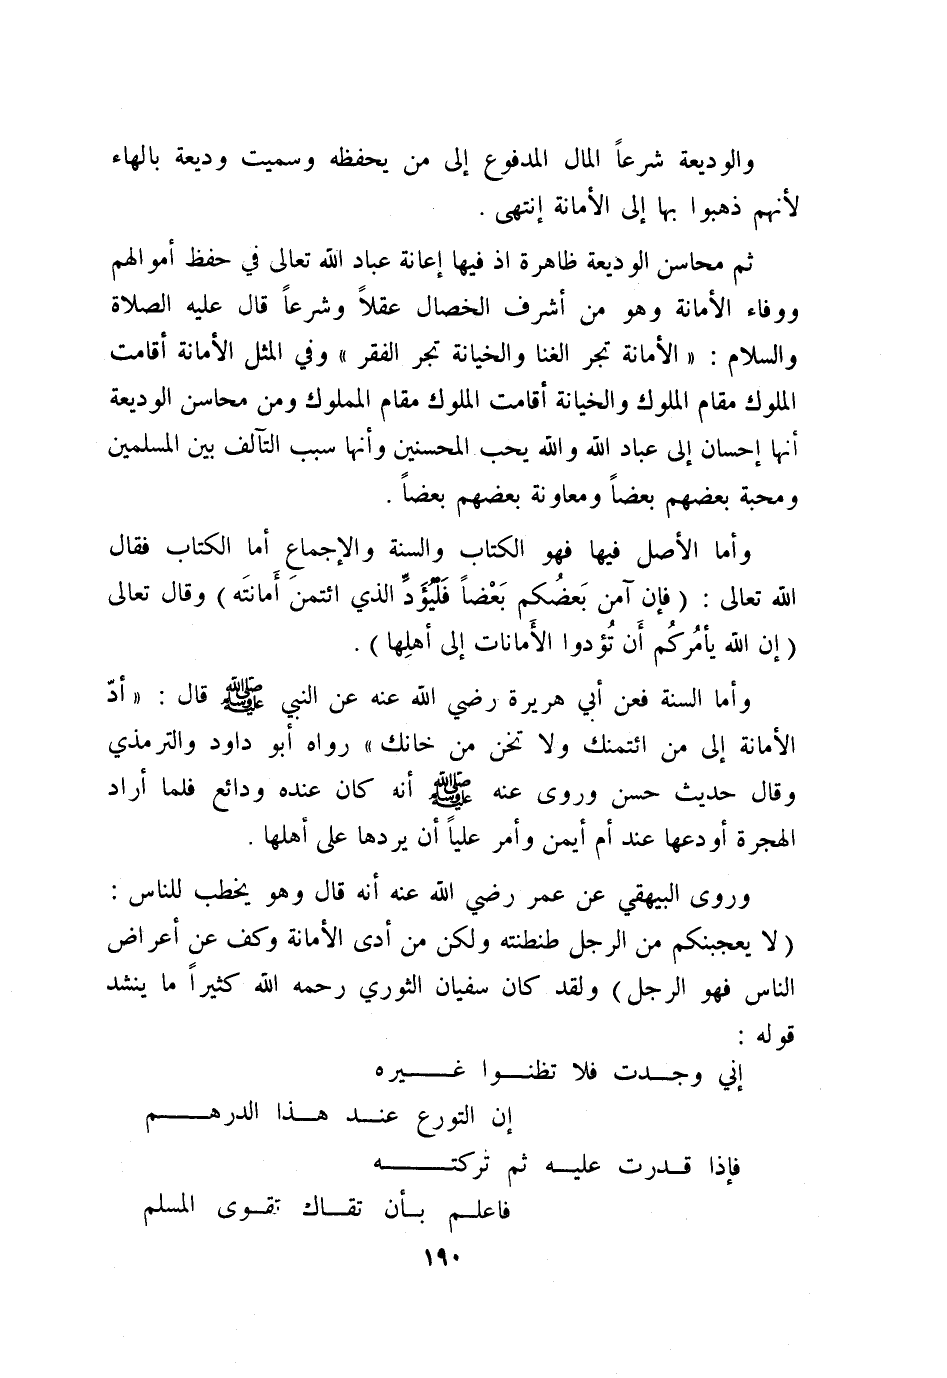 والوديعة شرعاً المال المدفوع إلى من يحفظه وسميت وديعة بالهاء
لأنهم ذهبوا بها إلى الأمانة إنتهى .
ثم محاسن الوديعة ظاهرة اذ فيها إعانة عباد الله تعالى في حفظ أموالهم
ووفاء الأمانة وهو من أشرف الخصال عقلاً وشرعاً قال عليه الصلاة
والسلام : « الأمانة تجر الغنا والخيانة تجر الفقر » وفي المثل الأمانة أقامت
الملوك مقام الملوك والخيانة أقامت الملوك مقام المملوك ومن محاسن الوديعة
أنها إحسان إلى عباد الله والله يحب المحسنين وأنها سبب التآلف بين المسلمين
ومحبة بعضهم بعضاً ومعاونة بعضهم بعضاً .
وأما الأصل فيها فهو الكتاب والسنة والإجماع أما الكتاب فقال
الله تعالى : ( فإن آمن بَعضُكم بَعْضاً فَلْيُؤَدِّ الذي ائتمنَ أَمانتَه ) وقال تعالى
( إن الله يأمُركُم أَن تُؤدوا الأَمانات إلى أهلِها ) .
وأما السنة فعن أبي هريرة رضي الله عنه عن النبي ﷺ قال : « أدّ
الأمانة إلى من ائتمنك ولا تخن من خانك » رواه أبو داود والترمذي
وقال حديث حسن وروى عنه ﷺ أنه كان عنده ودائع فلما أراد
الهجرة أودعها عند أم أيمن وأمر علياً أن يردها على أهلها .
وروى البيهقي عن عمر رضي الله عنه أنه قال وهو يخطب للناس :
( لا يعجبنكم من الرجل طنطنته ولكن من أدى الأمانة وكف عن أعراض
الناس فهو الرجل ) ولقد كان سفيان الثوري رحمه الله كثيراً ما ينشد
قوله :
إني وجـدت فلا تظنـوا غـــيره
إن التورع عنـد هـذا الدرهـــم
فإذا قـدرت عليـه ثم تركتــــه
فاعلـم بـأن تقـاك تقـوى المسلم
١٩٠